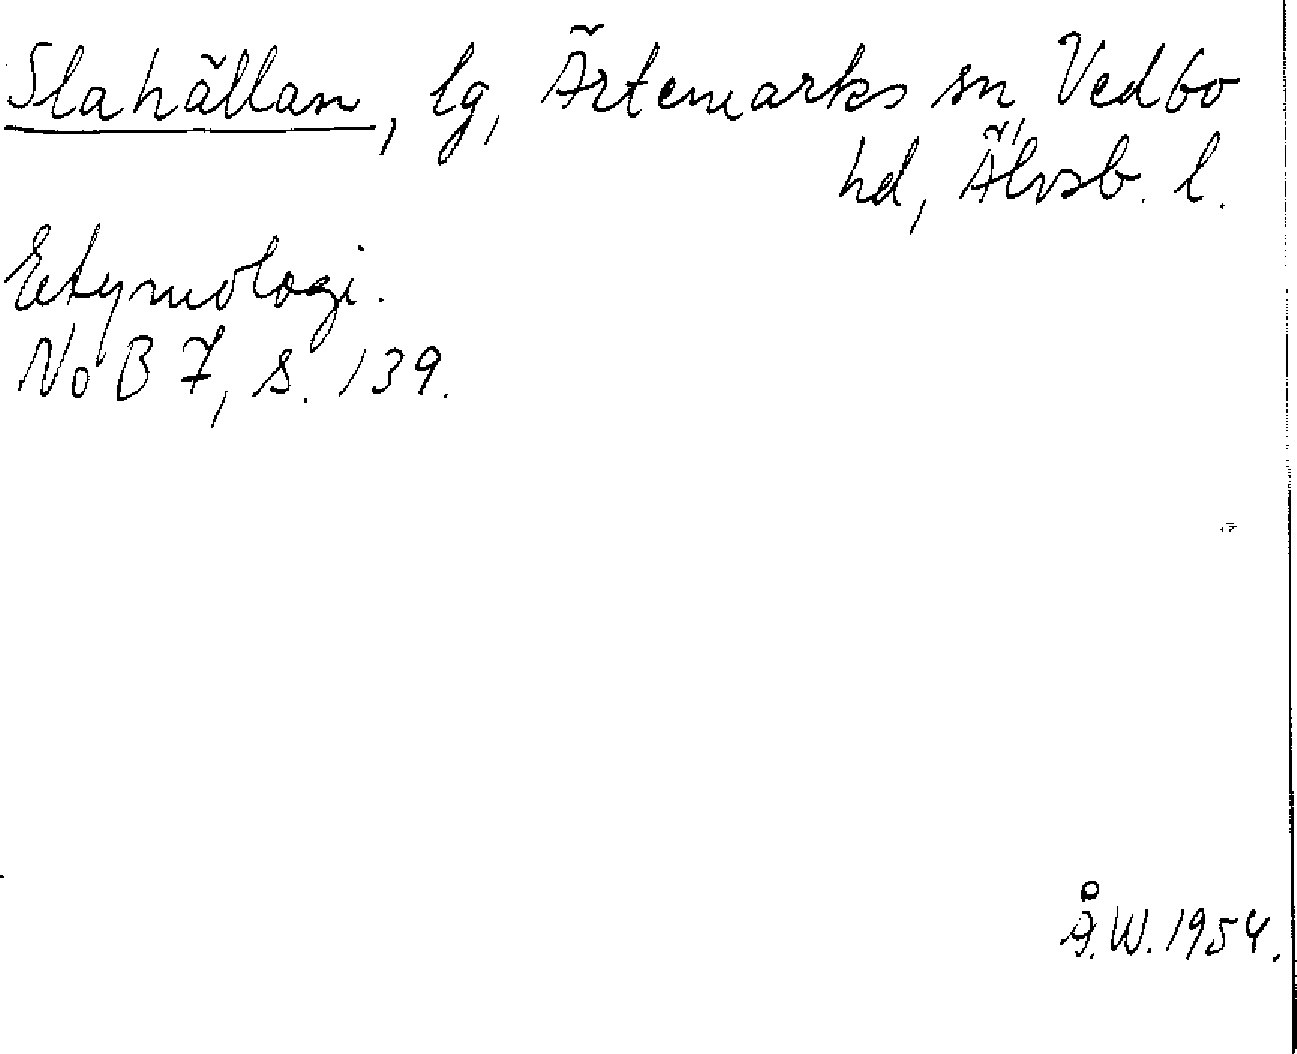 Slahällan, lg, Ärtemarks sn, Vedbo
hd, Älvsb. l.
Etymologi.
NoB 7, s. 139.
Å.W. 1954.